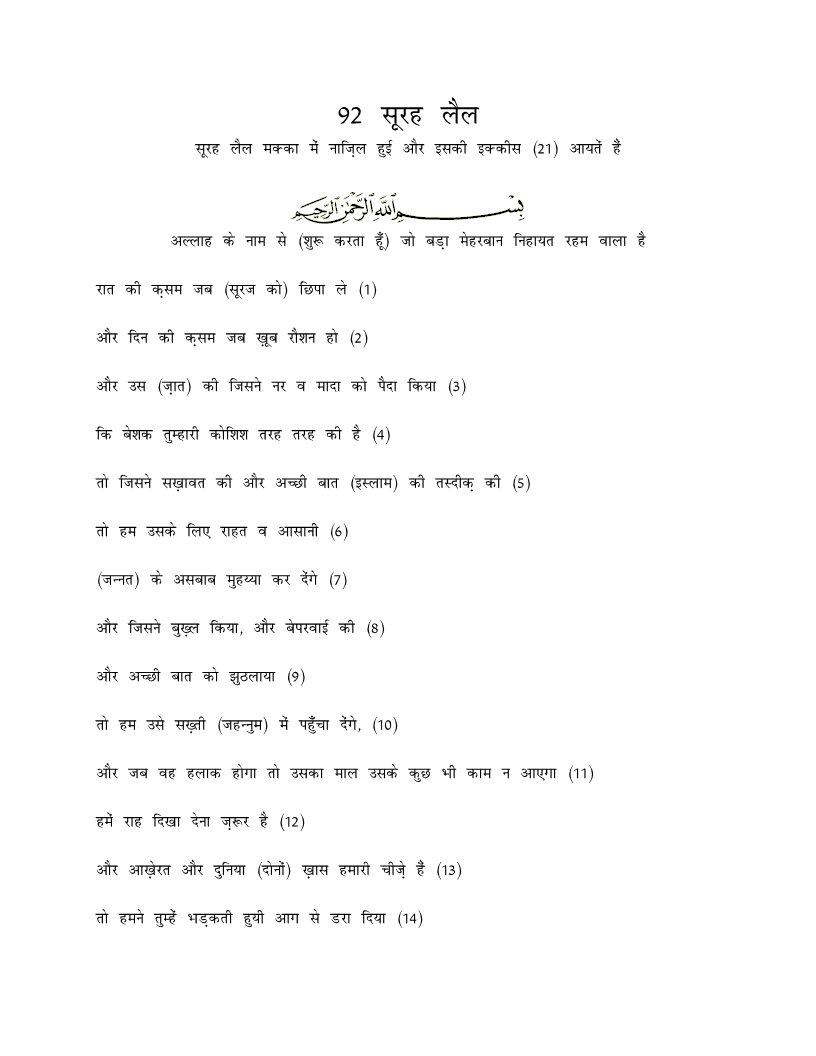 92 सूरह लैल
सूरह लैल मक्का में नाज़िल हुई और इसकी इक्कीस (21) आयतें हैं
بِسْمِ اللَّهِ الرَّحْمَٰنِ الرَّحِيمِ
अल्लाह के नाम से (शुरू करता हूँ) जो बड़ा मेहरबान निहायत रहम वाला है
रात की क़सम जब (सूरज को) छिपा ले (1)
और दिन की क़सम जब ख़ूब रौशन हो (2)
और उस (ज़ात) की जिसने नर व मादा को पैदा किया (3)
कि बेशक तुम्हारी कोशिश तरह तरह की है (4)
तो जिसने सख़ावत की और अच्छी बात (इस्लाम) की तस्दीक़ की (5)
तो हम उसके लिए राहत व आसानी (6)
(जन्नत) के असबाब मुहय्या कर देंगे (7)
और जिसने बुख़्ल किया, और बेपरवाई की (8)
और अच्छी बात को झुठलाया (9)
तो हम उसे सख़्ती (जहन्नुम) में पहुँचा देंगे, (10)
और जब वह हलाक होगा तो उसका माल उसके कुछ भी काम न आएगा (11)
हमें राह दिखा देना ज़रूर है (12)
और आख़ेरत और दुनिया (दोनों) ख़ास हमारी चीज़े हैं (13)
तो हमने तुम्हें भड़कती हुयी आग से डरा दिया (14)